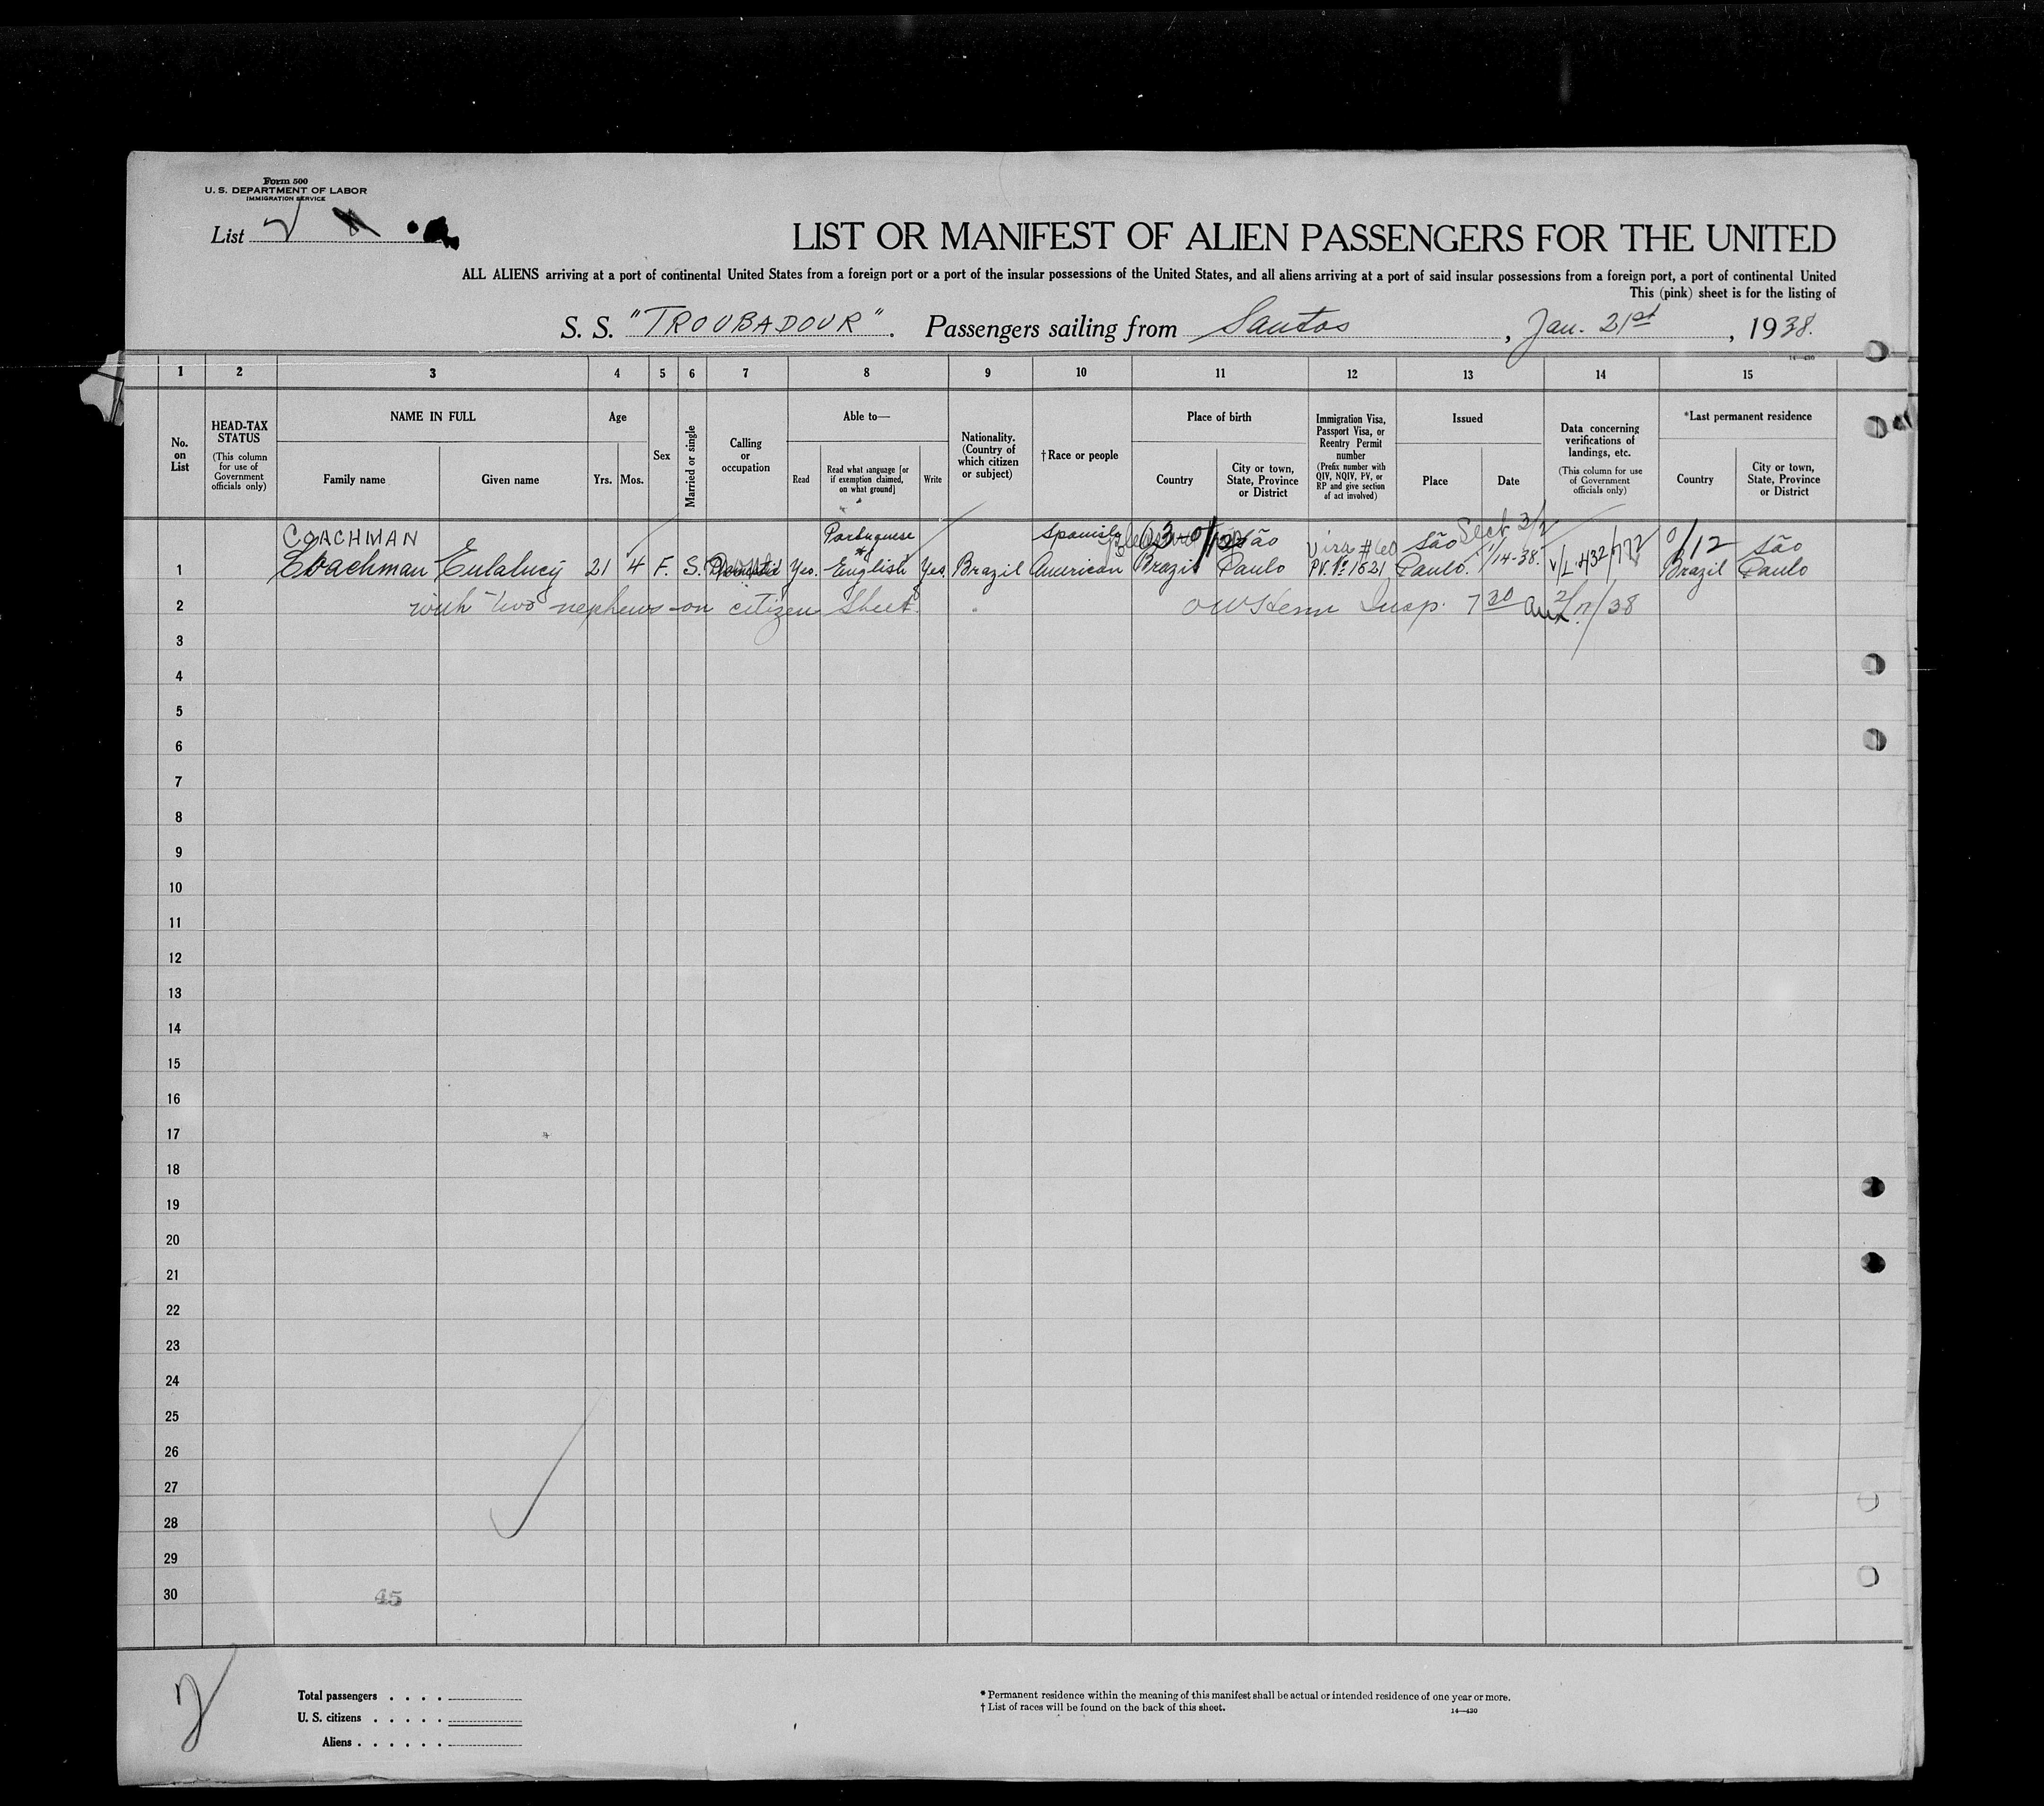 Form 500
U. S. DEPARTMENT OF LABOR
IMMIGRATION SERVICE
List 2
LIST OR MANIFEST OF ALIEN PASSENGERS FOR THE UNITED
ALL ALIENS arriving at a port of continental United States from a foreign port or a port of the insular possessions of the United States, and all aliens arriving at a port of said insular possessions from a foreign port, a port of continental United
This (pink) sheet is for the listing of
S. S. "TROUBADOUR". Passengers sailing from Santos, Jan. 21st, 1938.
14—430
1 2 3 4 5 6 7 8 9 10 11 12 13 14 15
No. on List
HEAD-TAX STATUS (This column for use of Government officials only)
NAME IN FULL
Family name
Given name
Age
Yrs. Mos.
Sex
Married or single
Calling or occupation
Able to—
Read
Read what language [or if exemption claimed, on what ground]
Write
Nationality. (Country of which citizen or subject)
†Race or people
Place of birth
Country
City or town, State, Province or District
Immigration Visa, Passport Visa, or Reentry Permit number (Prefix number with QIV, NQIV, PV, or RP and give section of act involved)
Issued
Place
Date
Data concerning verifications of landings, etc. (This column for use of Government officials only)
*Last permanent residence
Country
City or town, State, Province or District
COACHMAN Portuguese Spanish São Visa #60 São Sect 3/2 0/12 São
1 Coachman Eulalucy 21 4 F. S. Yes. English Yes. Brazil American Brazil Paulo PV. No 1621 Paulo. 1/14-38. Brazil Paulo
2 with two nephews on citizen sheet. Insp. 7 30 2/17/38
3
4
5
6
7
8
9
10
11
12
13
14
15
16
17
18
19
20
21
22
23
24
25
26
27
28
29
30
45
2
Total passengers . . . .
U. S. citizens . . . . .
Aliens . . . . . .
* Permanent residence within the meaning of this manifest shall be actual or intended residence of one year or more.
† List of races will be found on the back of this sheet.
14—430